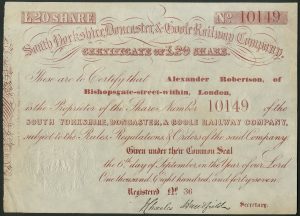 L.20 SHARE
No 10149
South Yorkshire, Doncaster, & Goole Railway Company.
CERTIFICATE OF L.20 SHARE.
These are to Certify that Alexander Robertson, of
Bishopsgate-street-within, London,
is the Proprietor of the Share Number 10149 of the
SOUTH YORKSHIRE, DONCASTER, & GOOLE RAILWAY COMPANY,
subject to the Rules, Regulations, & Orders of the said Company
Given under their Common Seal
the 6th day of September, in the Year of our Lord
One thousand Eight hundred, and forty seven
Registered No 36
Secretary.